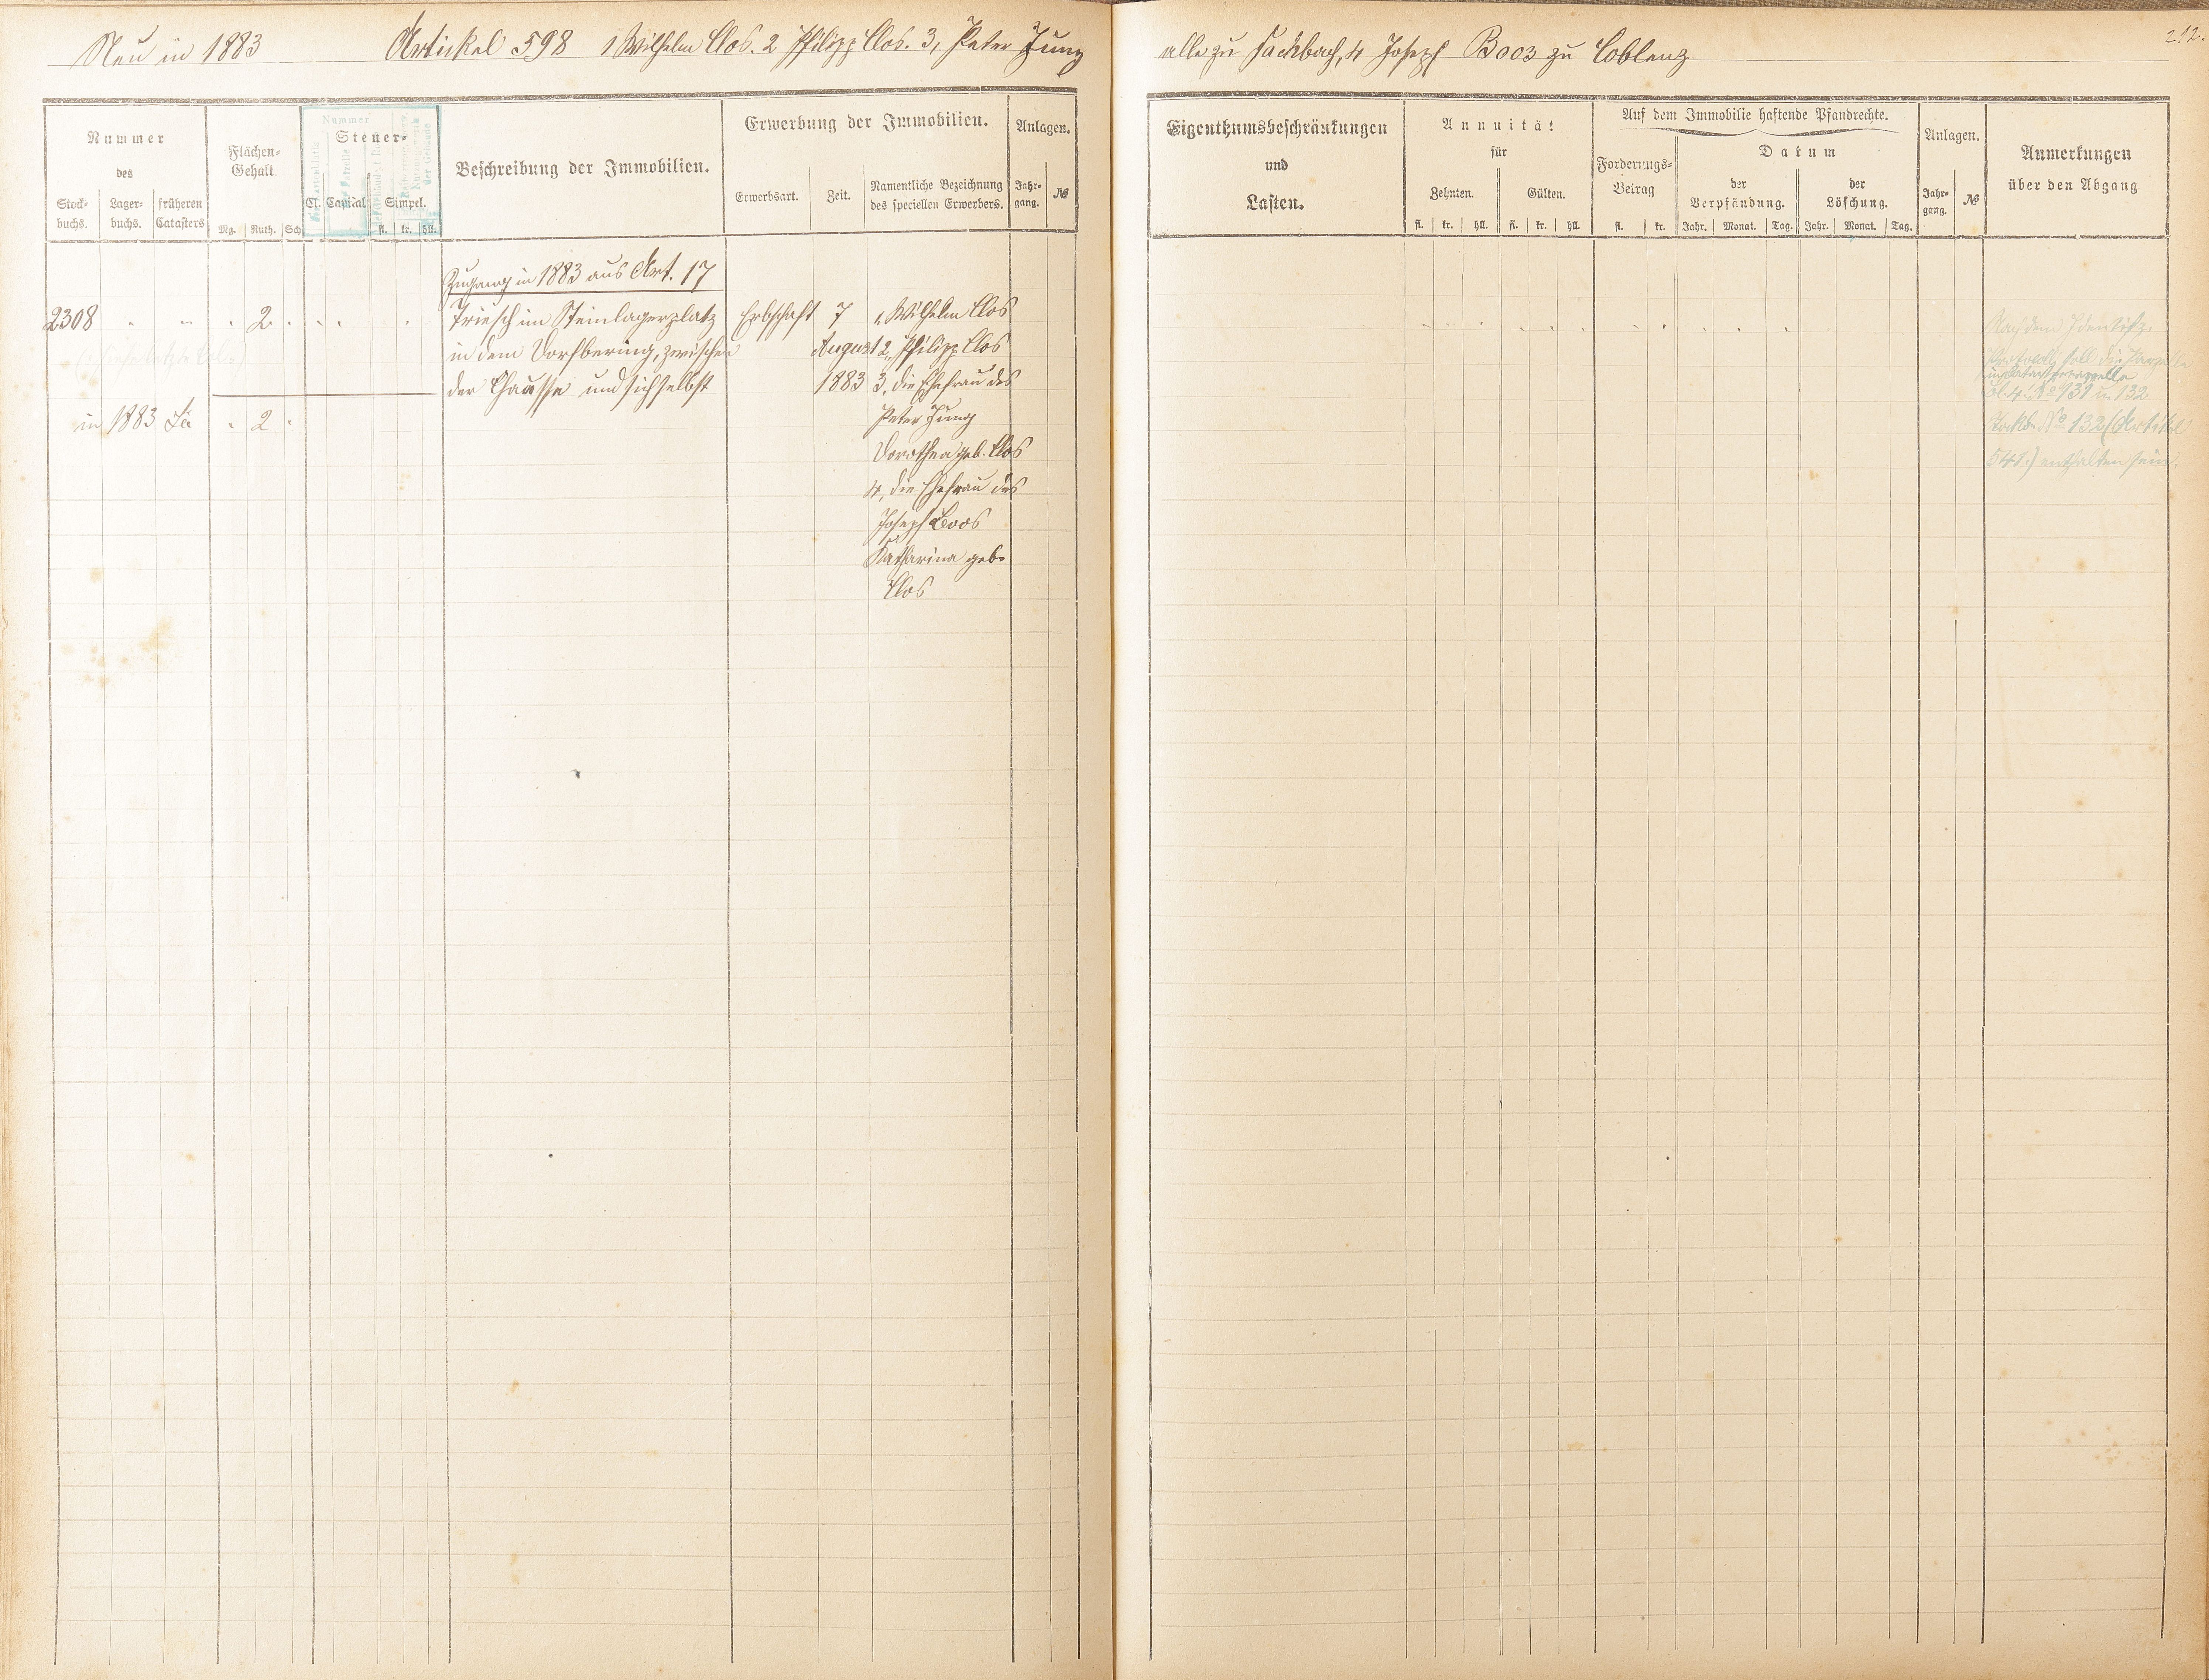 Neu in 1883 Artickel 598 1 Wilhelm Clos. 2 Philipp Clos. 3, Peter Jung
alle zu Fachbach, 4 Joseph Boos zu Coblenz
212.
Nummer
des
Stock-
buchs.
Lager-
buchs.
früheren
Catasters
Flächen-
Gehalt
Mg. Ruth. Sch
Nummer
Steuer-
Cl. Capital Simpel.
fl. kr. hll.
Beschreibung der Immobilien.
Erwerbung der Immobilien.
Erwerbsart. Zeit.
Namentliche Bezeichnung
des speciellen Erwerbers.
Anlagen.
Jahr-
gang.
№
Eigenthumsbeschränkungen
und
Lasten.
Annuität
für
Zehnten. Gülten.
fl. kr. hll. fl. kr. hll.
Auf dem Immobilie haftende Pfandrechte.
Forderungs-
Betrag
fl. kr.
Datum
der
Verpfändung.
der
Löschung.
Jahr. Monat. Tag. Jahr. Monat. Tag.
Anlagen.
Jahr-
gang.
№
Anmerkungen
über den Abgang
Zugang in 1883 aus Art. 17
2308 2 Triesch im Steinlagerplatz Erbschaft 7 1, Wilhelm Clos
in dem Dorfbering, zwischen August 2, Philipp Clos
der Chausse und sich selbst 1883 3, die Ehefrau des
in 1883 Sa 2 Peter Jung
Dorothea geb. Clos
4, die Ehefrau des
Joseph Boos
Katharina geb.
Clos
Nach dem
soll die Parzelle
Bl. 4. No 131 u. 132
Stockb. No 132 (Artikel
541.) enthalten sein.